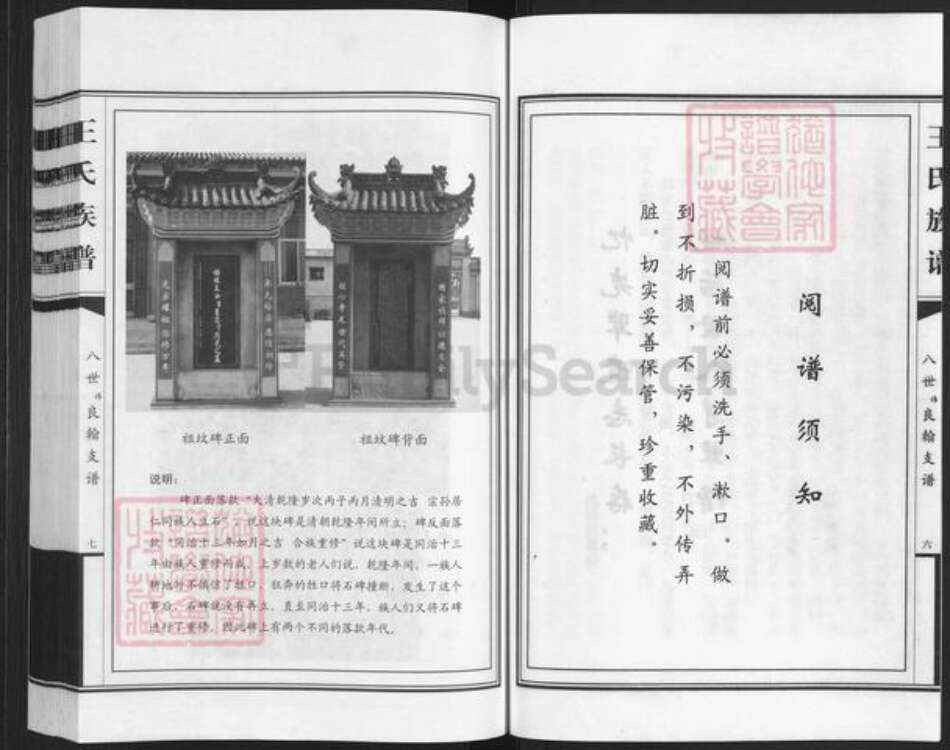 阅谱须知
阅谱前必须洗手、漱口。做
到不折损，不污染，不外传弄
脏。切实妥善保管，珍重收藏。
王氏族谱
八世 良翰支谱
六
王氏族谱
八世 良翰支谱
七
祖坟碑正面
祖坟碑背面
说明：
碑正面落款“大清乾隆岁次丙子丙月清明之吉 宗孙居
仁同族人立石”，说这块碑是清朝乾隆年间所立；碑反面落
款“同治十三年如月之吉 合族重修”说这块碑是同治十三
年由族人重修而成。上岁数的老人们说，乾隆年间，一族人
耕地时不慎惊了牲口，狂奔的牲口将石碑撞断，发生了这个
事后，石碑就没有再立，直至同治十三年，族人们又将石碑
进行了重修，因此碑上有两个不同的落款年代。
FamilySearch